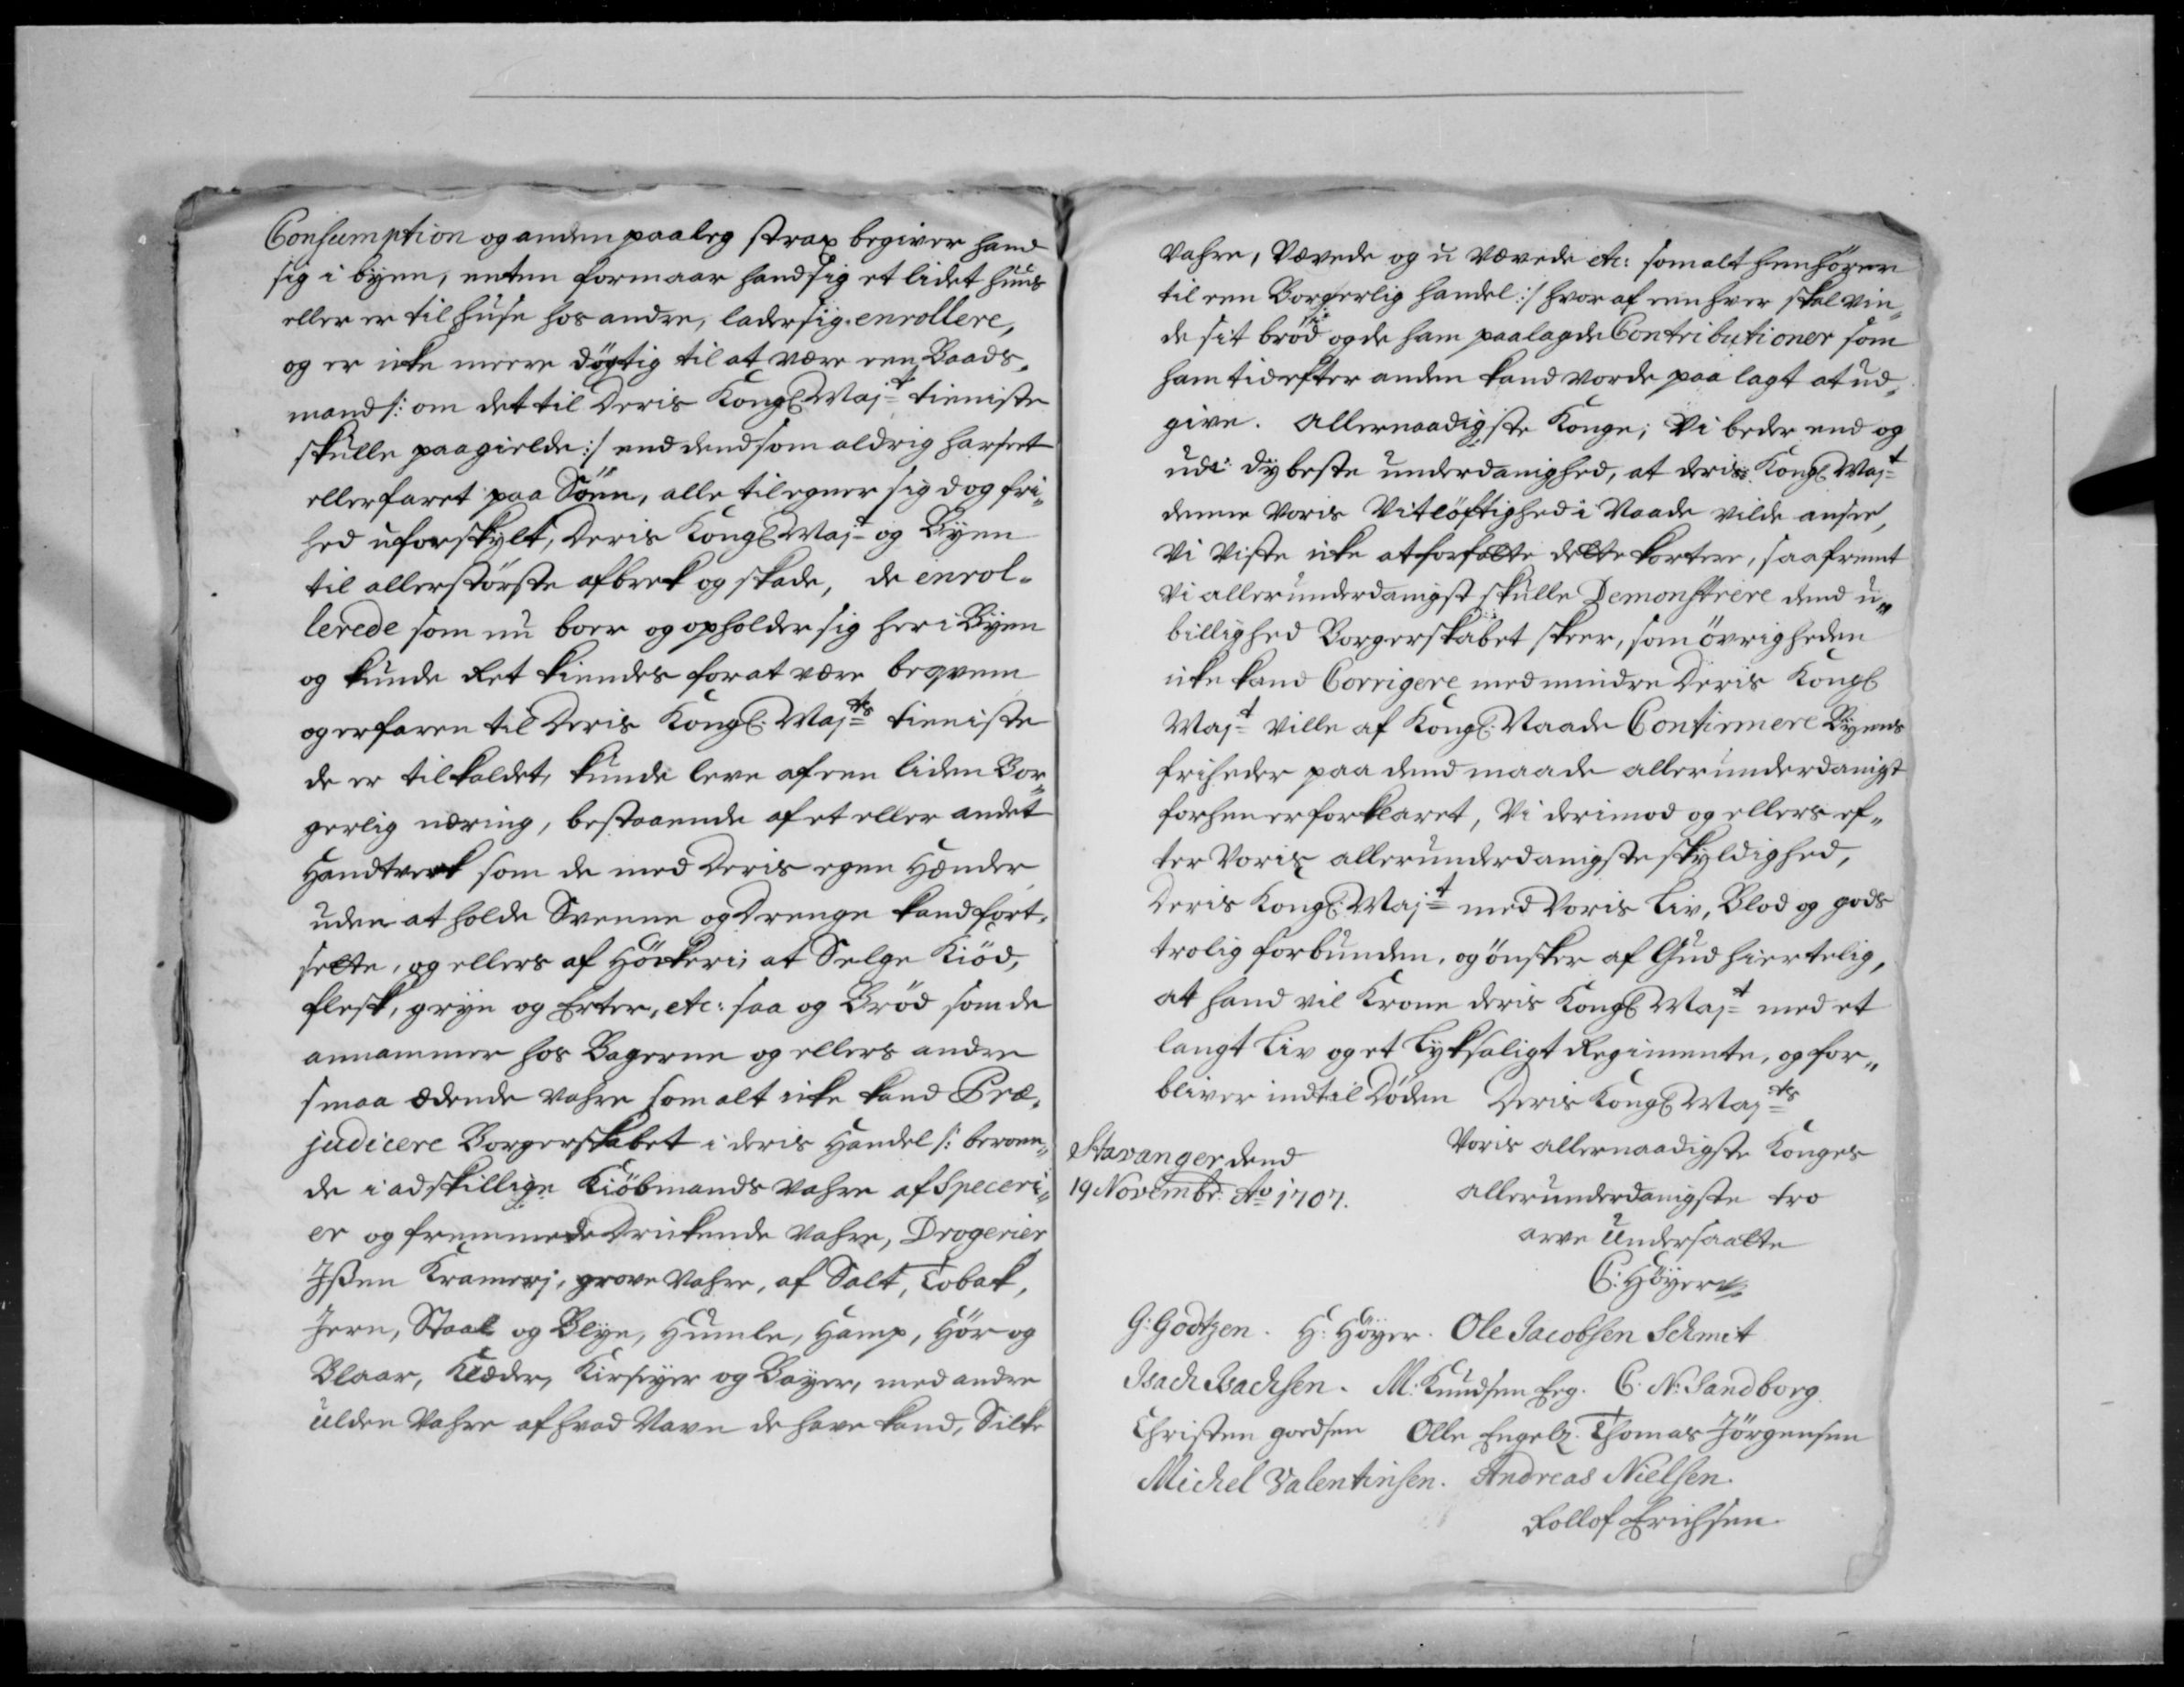 Consumption og anden paaleg strax begiver hand
sig i byen, enten formaar hand sig et lidet huus
eller er til huse hos andre, lader sig enrollere,
og er icke meere døgtig til at være een Baads„
mand /: om det til Deris Kongl Maj:t tieniste
skulle paagielde :/ end dend som aldrig har seet
eller faret paa Søen, alle tilegner sig dog fri„
hed uforskylt, Deris Kongl Maj:t og Byen
til allerstørste afbrek og skade, de enrol„
lerede som nu boer og opholder sig her i Byen
og kunde Ret kiendes for at være beqvem
og erfaren til Deris Kongl. Maj:ts tieniste
de er til kaldet, kunde leve af een liden Bor„
gerlig næring, bestaaende af et eller andet
Handtverk som de med Deris egen Hænder
uden at holde Svenne og Drenge kand fort„
sette, og ellers af Høckeri, at Selge Kiød,
flesk, gryn og Erter, etc: saa og Brød som de
annammer hos Bagerne og ellers andre
smaa ædende vahre som alt icke kand Præ„
judicere Borgerskabet i deris Handel /: beroen„
de i adskillige Kiøbmands vahre af Speceri„
er og fremmede Drickende vahre, Drogerier
Ißen Kramerj, grove vahre, af Salt, Tobak,
Jern, Staal og Blye, Humle, Hamp, Hør og
Blaar, Klæder, Kirseyer og Bayer, med andre
ulden Vahre af hvad Navn de have kand, Silke
Vahre, Vævede og u vævede etc: som alt henhører
til een Borgerlig handel :/ hvor af een hver skal vin„
de sit brød og de ham paalagde Contributioner som
ham tid efter anden kand vorde paa lagt at ud„
give. Allernaadigste Konge; Vi beder end og
udi dybeste underdanighed, at deris Kongl Maj:t
denne Voris Vitløftighed i Naade vilde ansee,
Vi viste icke at forfatte dette kortere, saafremt
Vi allerunderdanigst skulle Demonstrere dend u„
billighed Borgerskabet skeer, som øvrigheden
icke kand Corrigere med mindre Deris Kongl
Maj:t ville af Kongl. Naade Confirmere Byens
friheder paa dend maade allerunderdanigst
forhen er forklaret, Vi derimod og ellers ef„
ter Voris allerunderdanigste skyldighed,
Deris Kongl. Maj:t med Voris Liv, Blod og gods
trolig forbunden, og ønsker af Gud hiertelig,
at hand vil Krone deris Kongl Maj:t med et
langt Liv og et Lyksaligt Regimente, og for„
bliver indtil Døden Deris Kongl Maj:ts
Voris allernaadigste Konges
Stavanger dend
19 Novembr: Ao 1707.
allerunderdanigste tro
arve Undersaatte
C: Høyer
G: Godtzen. H: Høyer. Ole Jacobsen Schmit
Isach Isachsen. M: Knudsen Erg. C: N: Sandborg.
Christen goedsen Olle Engelz. Thomas Jørgensen
Michel Valentinsen. Andreas Nielsen.
Rollof Erichsen.